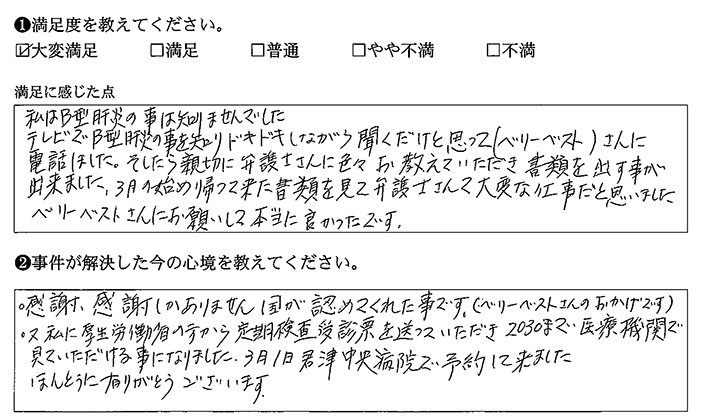 ❶満足度を教えてください。
☑大変満足 □満足 □普通 □やや不満 □不満
満足に感じた点
私はB型肝炎の事は知りませんでした
テレビでB型肝炎の事を知りドキドキしながら聞くだけと思って(ベリーベスト)さんに
電話しました。そしたら親切に弁護士さんに色々お教えていただき書類を出す事が
出来ました、3月の始め帰って来た書類を見て弁護士さんて大変な仕事だと思いました
ベリーベストさんにお願いして本当に良かったです.
❷事件が解決した今の心境を教えてください。
○感謝、感謝しかありません国が認めてくれた事です。(ベリーベストさんのおかげです)
○又私に厚生労働省の方から定期検査受診票を送っていただき2030まで医療機関で
見ていただける事になりました.3月1日君津中央病院で予約して来ました
ほんとうに有りがとうございます.